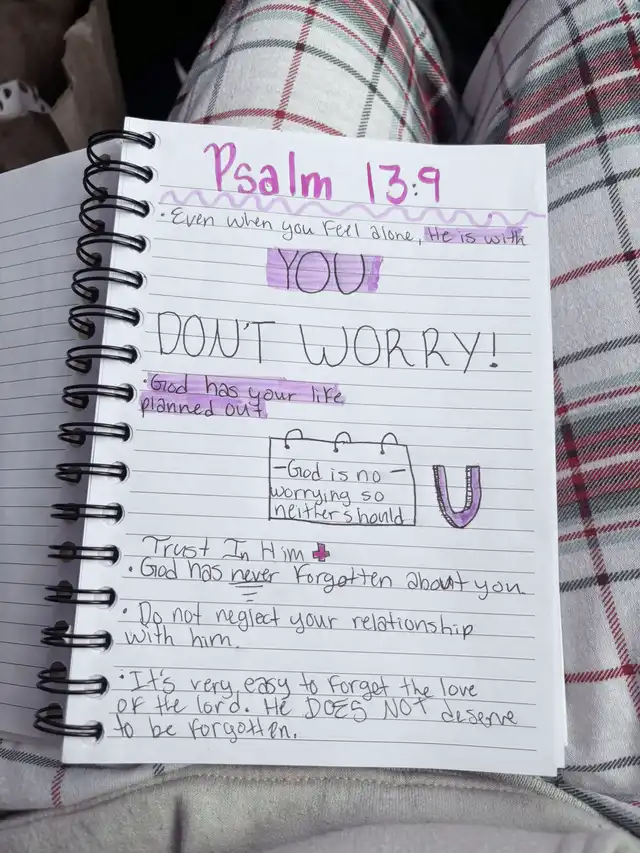 Psalm 13:9
• Even when you feel alone, He is with
YOU
DON'T WORRY!
• God has your life
planned out
- God is no -
worrying so
neither should
U
Trust In Him
• God has never forgotten about you
• Do not neglect your relationship
with him.
• It's very easy to forget the love
of the lord. He DOES NOT deserve
to be forgotten.